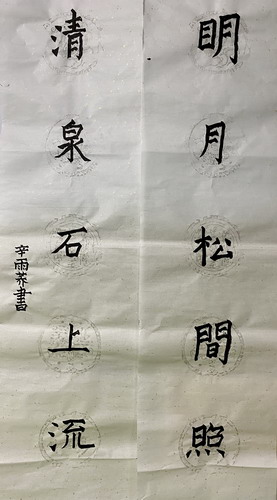 明月松間照
清泉石上流
辛雨荞書